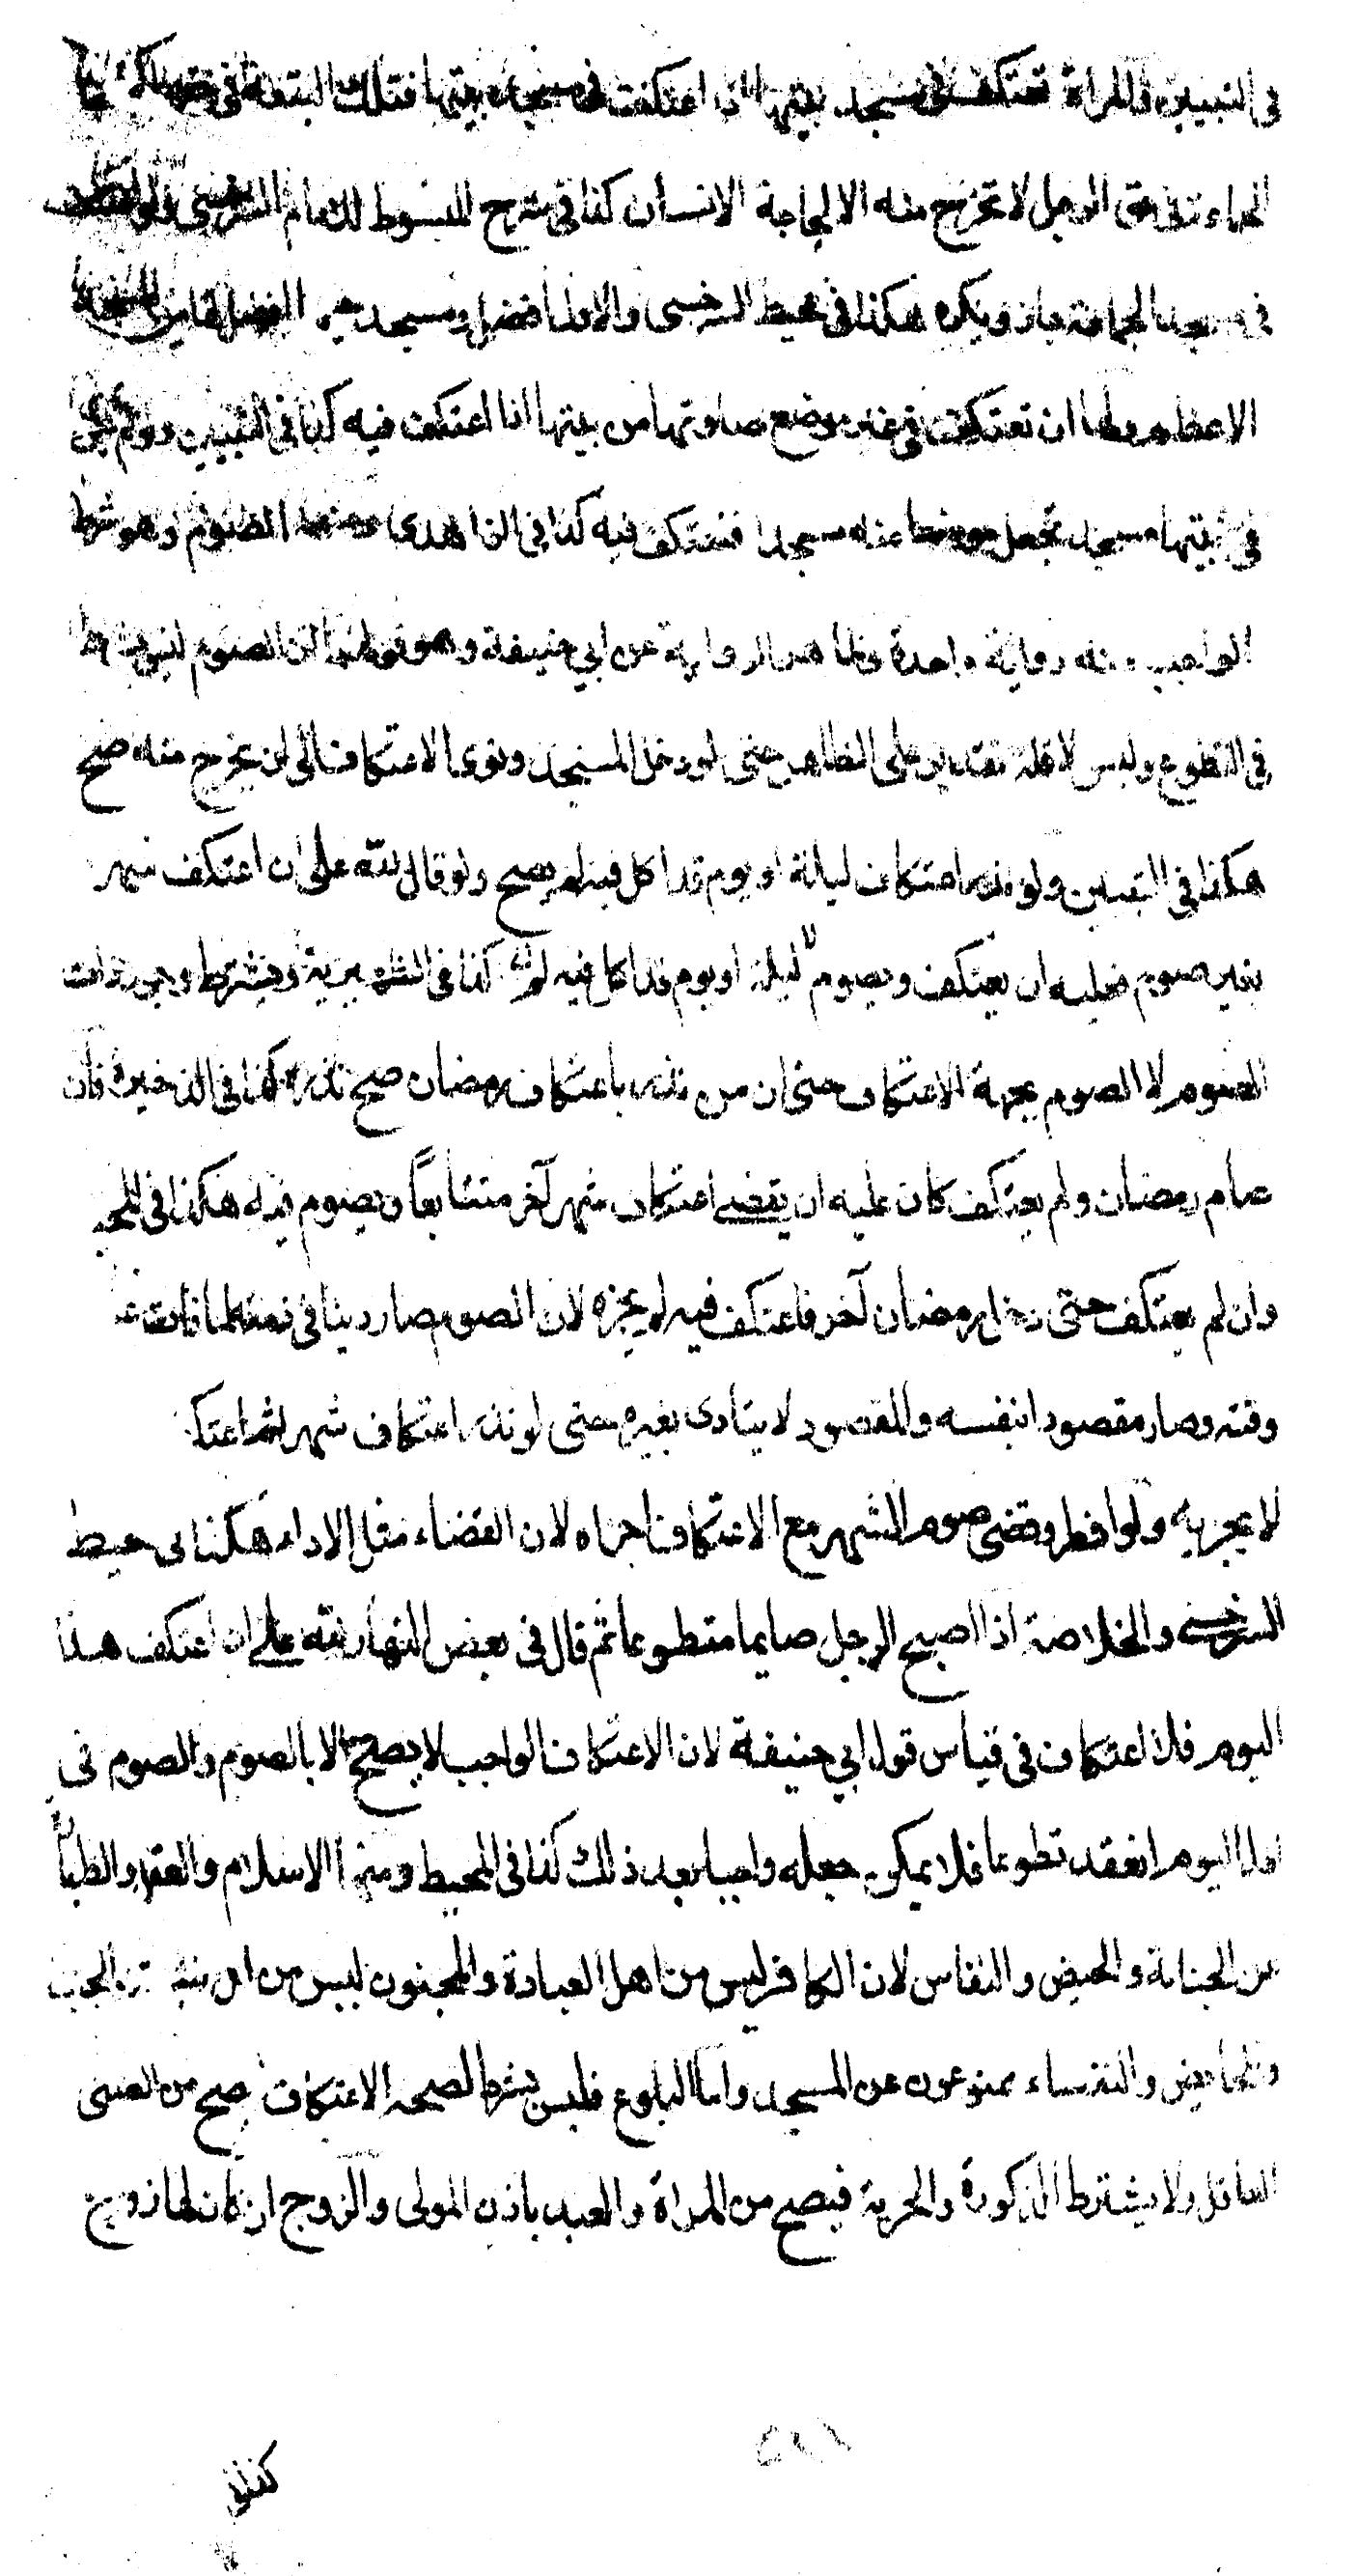 في التبيين والمراة تعتكف في مسجد بيتها اذا اعتكفت في مسجد بيتها فتلك البقعة في حقها كمسجد
الجماعة في حق الرجل لا تخرج منه الا لحاجة الانسان كذا في شرح المبسوط للامام السرخسي ولو اعتكفت
في مسجد الجماعة جاز ويكره هكذا في محيط السرخسي والاول افضل ومسجد حيها افضل لها من المسجد
الاعظم ولها ان تعتكف في غير موضع صلوتها من بيتها اذا اعتكف فيه كذا في التبيين ولو لم يكن
في بيتها مسجد تجعل موضعا منه مسجدا فتعتكف فيه كذا في الزاهدى ومنها الصوم وهو شرط
الواجب منه رواية واحدة وظاهر الرواية عن ابي حنيفة وهو قولهما ان الصوم ليس بشرط
في التطوع وليس لاقله تقدير على الظاهر حتى لو دخل المسجد ونوى الاعتكاف الى ان يخرج منه صح
هكذا في التبيين ولو نذر اعتكاف ليلة او يوم قد اكل فيه لم يصح ولو قال لله علي ان اعتكف شهر
بغير صوم فعليه ان يعتكف ويصوم ليلة او يوم قد اكل فيه لم كذا في الظهيرية ويشترط وجود ذات
الصوم لا الصوم بجهة الاعتكاف حتى ان من نذر باعتكاف رمضان صح نذره كذا في الذخيرة فان
صام رمضان ولم يعتكف كان عليه ان يقضي اعتكاف شهر آخر متتابعاً ويصوم فيه هكذا في المحيط
وان لم يعتكف حتى دخل رمضان آخر فاعتكف فيه لم يجزه لان الصوم صار دينا في ذمته لما فات عن
وقته وصار مقصودا بنفسه والمقصود لا يتادى بغيره حتى لو نذر اعتكاف شهر ثم اعتكف
لا يجزيه ولو افطر وقضى صوم الشهر مع الاعتكاف اجزاه لان القضاء مثل الاداء هكذا في محيط
السرخسي والخلاصة اذا اصبح الرجل صايما متطوعا ثم قال في بعض النهار لله علي ان اعتكف هذا
اليوم فلا اعتكاف في قياس قول ابي حنيفة لان الاعتكاف الواجب لا يصح الا بالصوم والصوم في
اول اليوم انعقد تطوعا فلا يمكن جعله واجبا بعد ذلك كذا في المحيط ومنها الاسلام والعقل والطهارة
عن الجنابة والحيض والنفاس لان الكافر ليس من اهل العبادة والمجنون ليس من اهل النية والجنب
والحايض والنفساء ممنوعون عن المسجد واما البلوغ فليس بشرط لصحة الاعتكاف يصح من الصبي
العاقل ولا يشترط الذكورة والحرية فيصح من المراة والعبد باذن المولى والزوج ان كان لها زوج